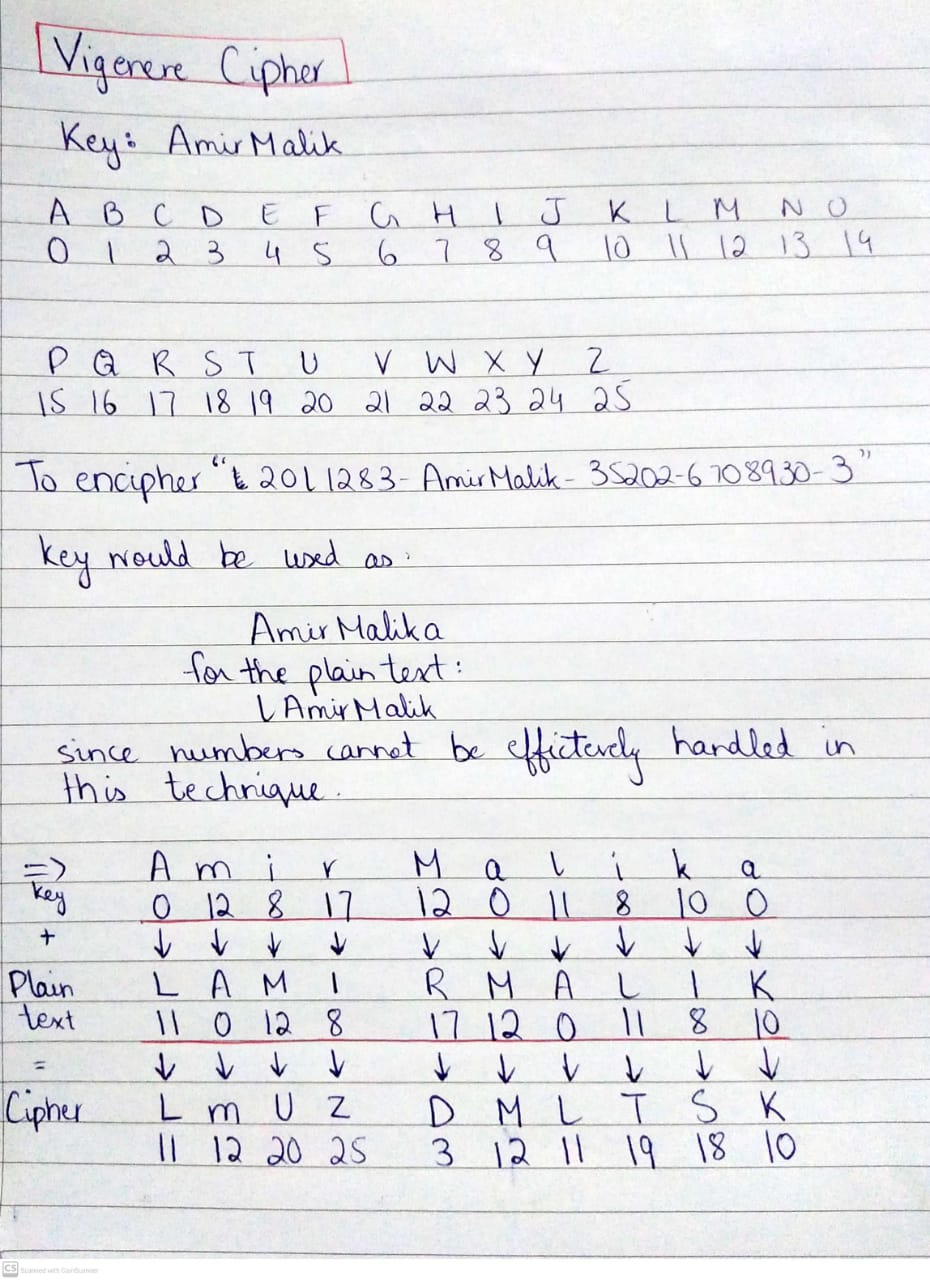 Vigenere Cipher
Key: Amir Malik
A B C D E F G H I J K L M N O
0 1 2 3 4 5 6 7 8 9 10 11 12 13 14
P Q R S T U V W X Y Z
15 16 17 18 19 20 21 22 23 24 25
To encipher "L 20L1283- AmirMalik- 35202-6708930-3"
key would be used as:
Amir Malika
for the plain text:
L AmirMalik
since numbers cannot be effictevely handled in
this technique.
=> A m i r M a l i k a
key 0 12 8 17 12 0 11 8 10 0
+ ↓ ↓ ↓ ↓ ↓ ↓ ↓ ↓ ↓ ↓
Plain L A M I R M A L I K
text 11 0 12 8 17 12 0 11 8 10
= ↓ ↓ ↓ ↓ ↓ ↓ ↓ ↓ ↓ ↓
Cipher L m U Z D M L T S K
11 12 20 25 3 12 11 19 18 10
CS Scanned with CamScanner